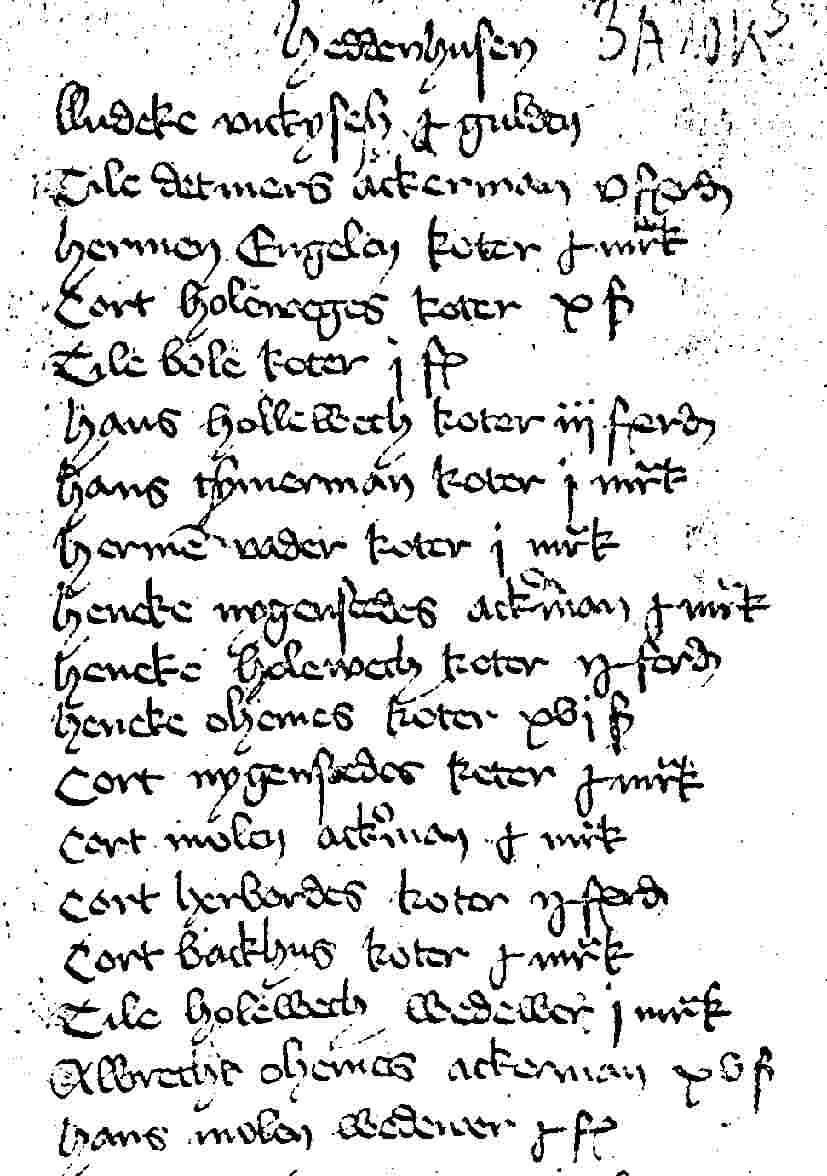 Heddenhusen 3A 10 K 5
Ludeke rickyseh ɉ gulden
Tile detmers ackerman v ferd
hermen Engelen koter ɉ mrk
Cort holeweges koter x ß
Tile bole koter j ß
hans hollewech koter iij ferd
hans tymerman koter j mrk
hermē vader koter j mrk
heneke nygenstedes ackerman ɉ mrk
heneke holewech koter ij ferd
heneke ohemes koter xvj ß
Cort nygenstedes koter ɉ mrk
Cort molen ackerman ɉ mrk
Cort herbordes koter ij ferd
Cort backhus koter ɉ mrk
Tile holewech wedewer j mrk
Albrecht ohemes ackerman xv ß
hans molen wedewer ɉ ß